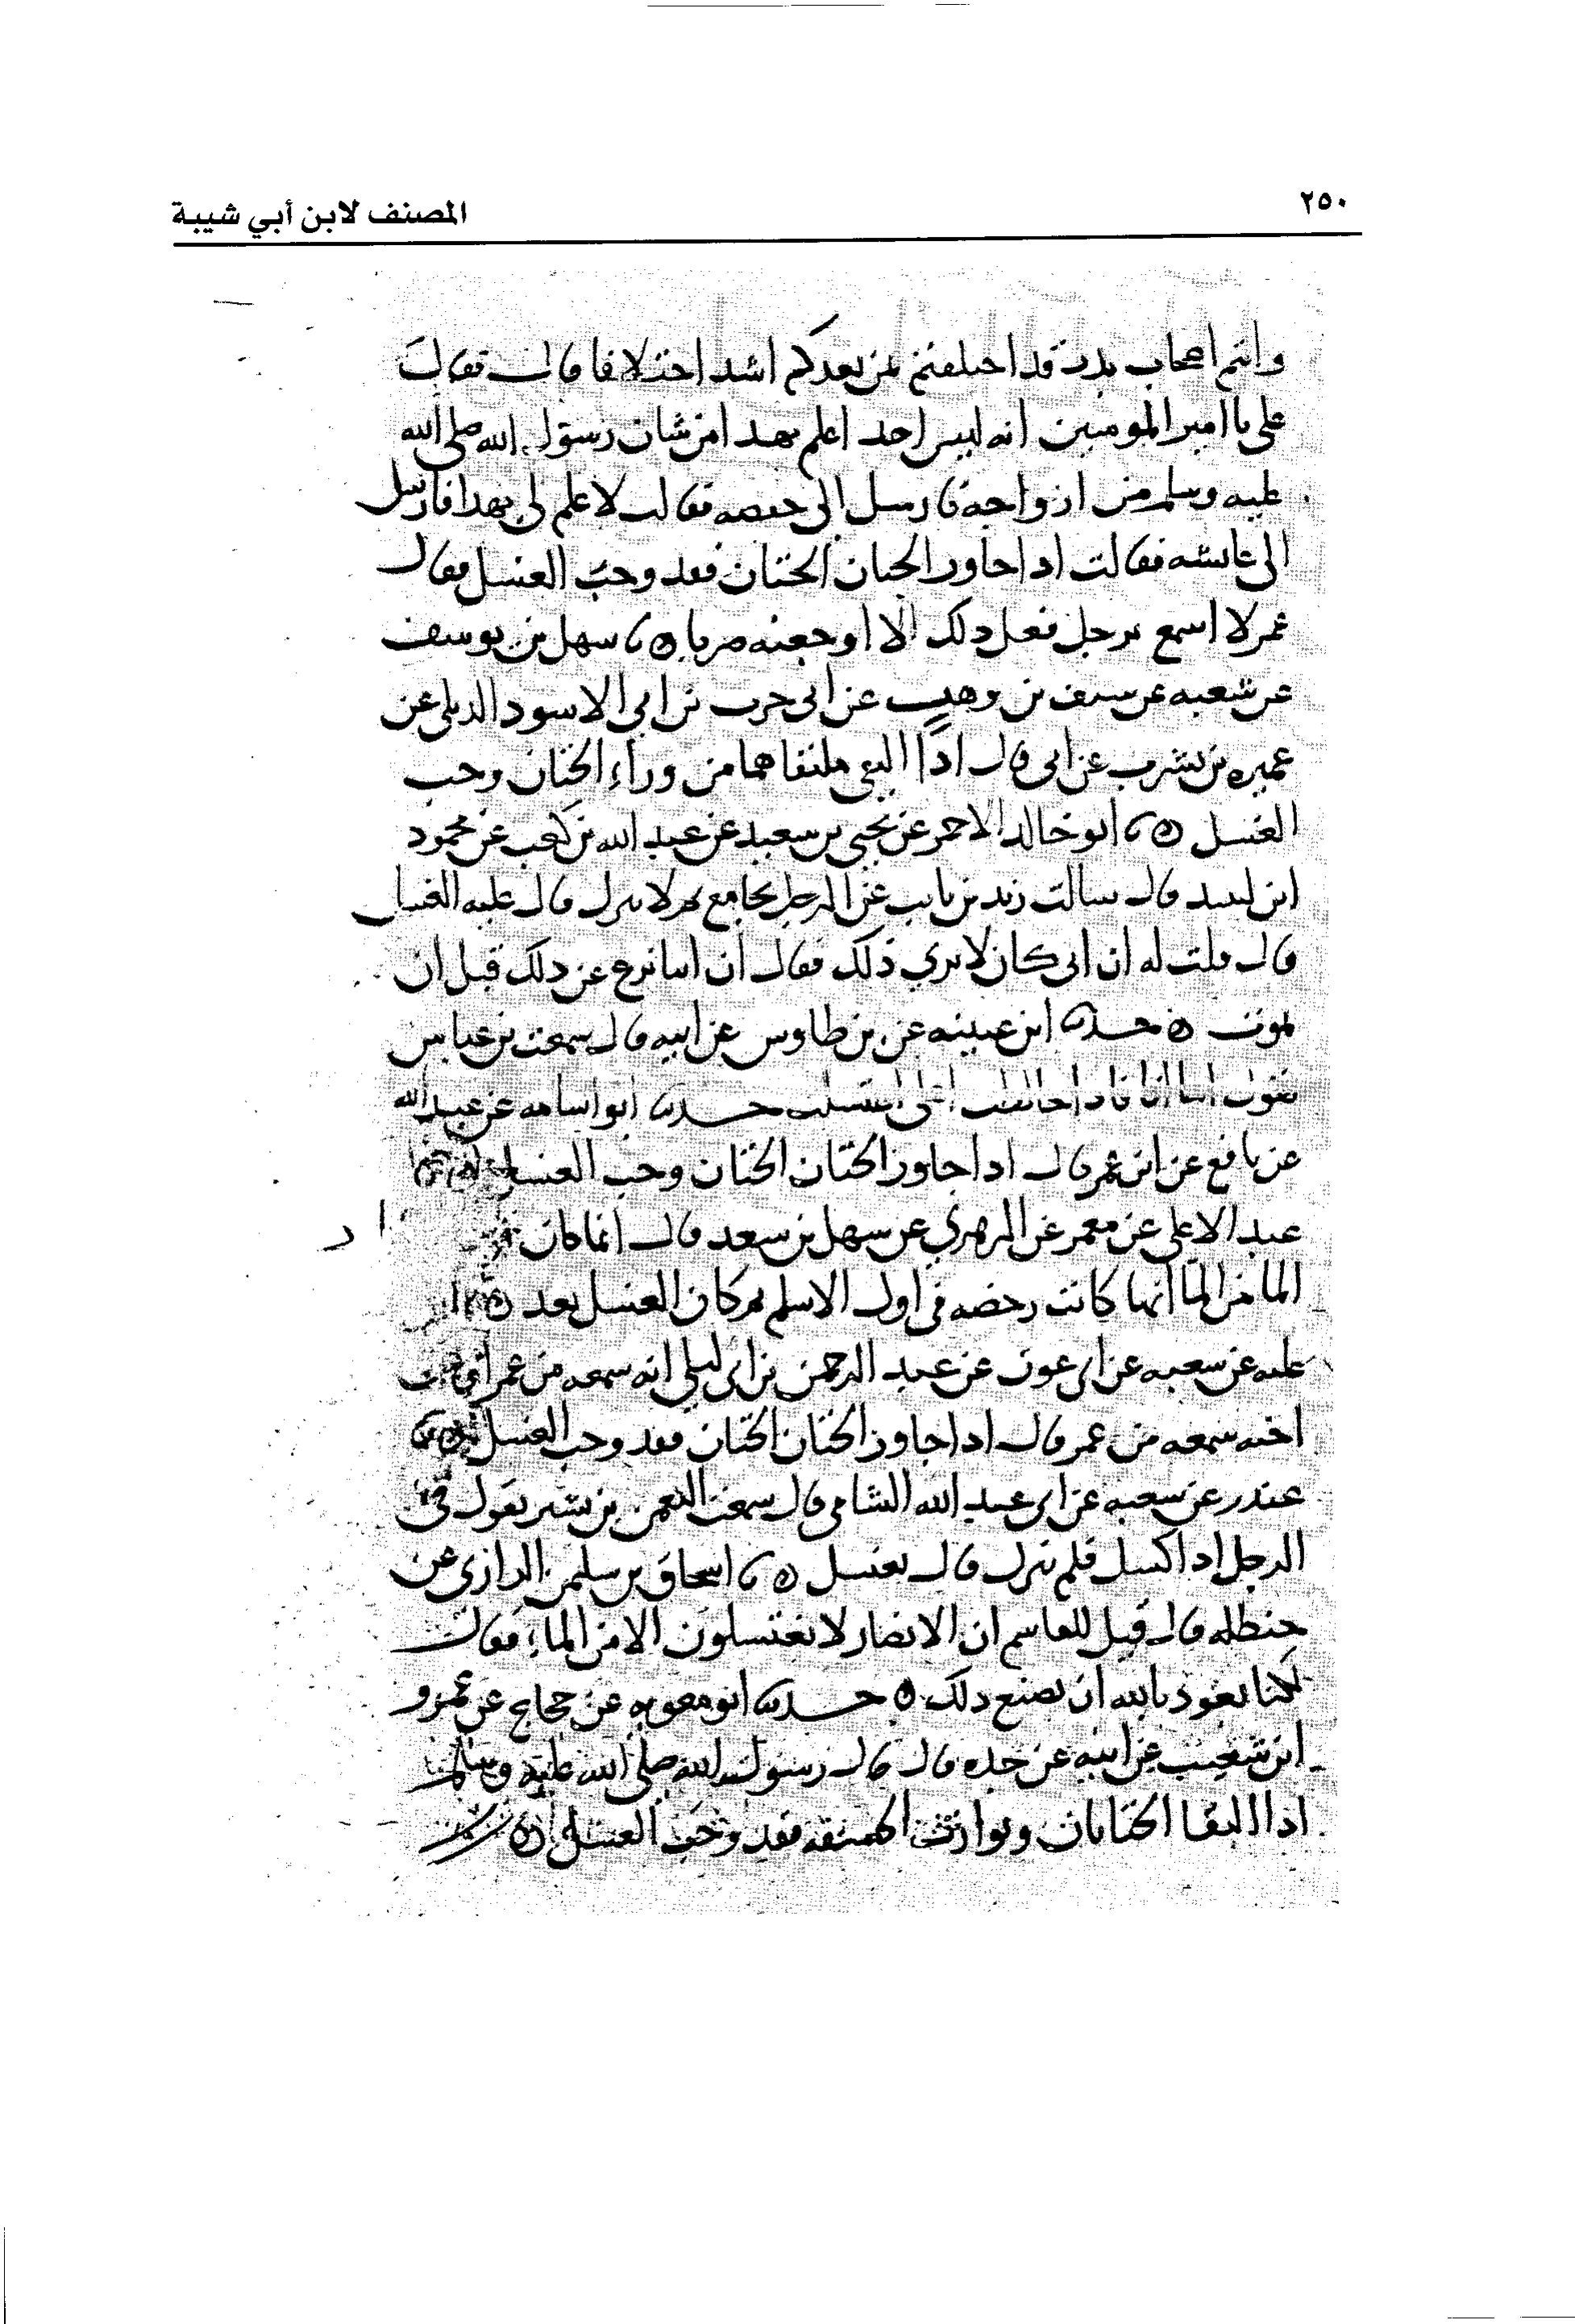 ٢٥٠
المصنف لابن أبي شيبة
وانتم اصحاب بدر قد اختلفتم فمن بعدكم اشد اختلافا قال فقال
علي يا امير المومنين انه ليس احد اعلم بهدا من شان رسول الله صلى الله
عليه وسلم من ازواجه فارسل الى حفصه فقالت لا علم لي بهدا فارسل
الى عائشه فقالت ادا جاوز الختان الختان فقد وجب الغسل فقال
عمر لا اسمع برجل فعل دلك الا اوجعته ضربا ه نا سهل بن يوسف
عن شعبه عن سيف بن وهب عن ابي حرب بن ابي الاسود الديلي عن
عميره بن يثربي عن ابي قال اذا التقى ملتقاهما من وراء الختان وجب
الغسل ه نا ابو خالد الاحمر عن يحيى بن سعيد عن عبد الله بن كعب عن محمود
ابن لبيد قال سالت زيد بن ثابت عن الرجل يجامع ثم لا ينزل قال عليه الغسل
قال قلت له ان ابي كان لا يري ذلك فقال ان ابيا نزع عن دلك قبل ان
يموت ه حدثنا ابن عيينه عن بن طاوس عن ابيه قال سمعت بن عباس
يقول اما انا فادا خالطت اهلي اغتسلت حدثنا ابو اسامه عن عبيد الله
عن نافع عن ابن عمر قال ادا جاوز الختان الختان وجب الغسل
عبد الاعلى عن معمر عن الزهري عن سهل بن سعد قال انما كان
الما من الما انها كانت رخصه في اول الاسلم ثم كان الغسل بعد ه
عليه عن شعبه عن ابي عون عن عبد الرحمن بن ابي ليلى انه سمعه من عمر او من
اخته سمعه من عمر قال ادا جاوز الختان الختان فقد وجب الغسل
غندر عن شعبه عن ابي عبد الله الشامي قال سمعت النعمن بن بشير يقول في
الرجل ادا اكسل فلم ينزل قال يغتسل ه نا اسحاق بن سليمن الرازي عن
حنظله قال قيل للقاسم ان الانصار لا يغتسلون الا من الماء فقال
لكنا نعوذ بالله ان نصنع دلك ه حدثنا ابو معويه عن حجاج عن عمرو
ابن شعيب عن ابيه عن جده قال قال رسول الله صلى الله عليه وسلم
ادا التقا الختانان وتوارت الحشفه فقد وجب الغسل ه